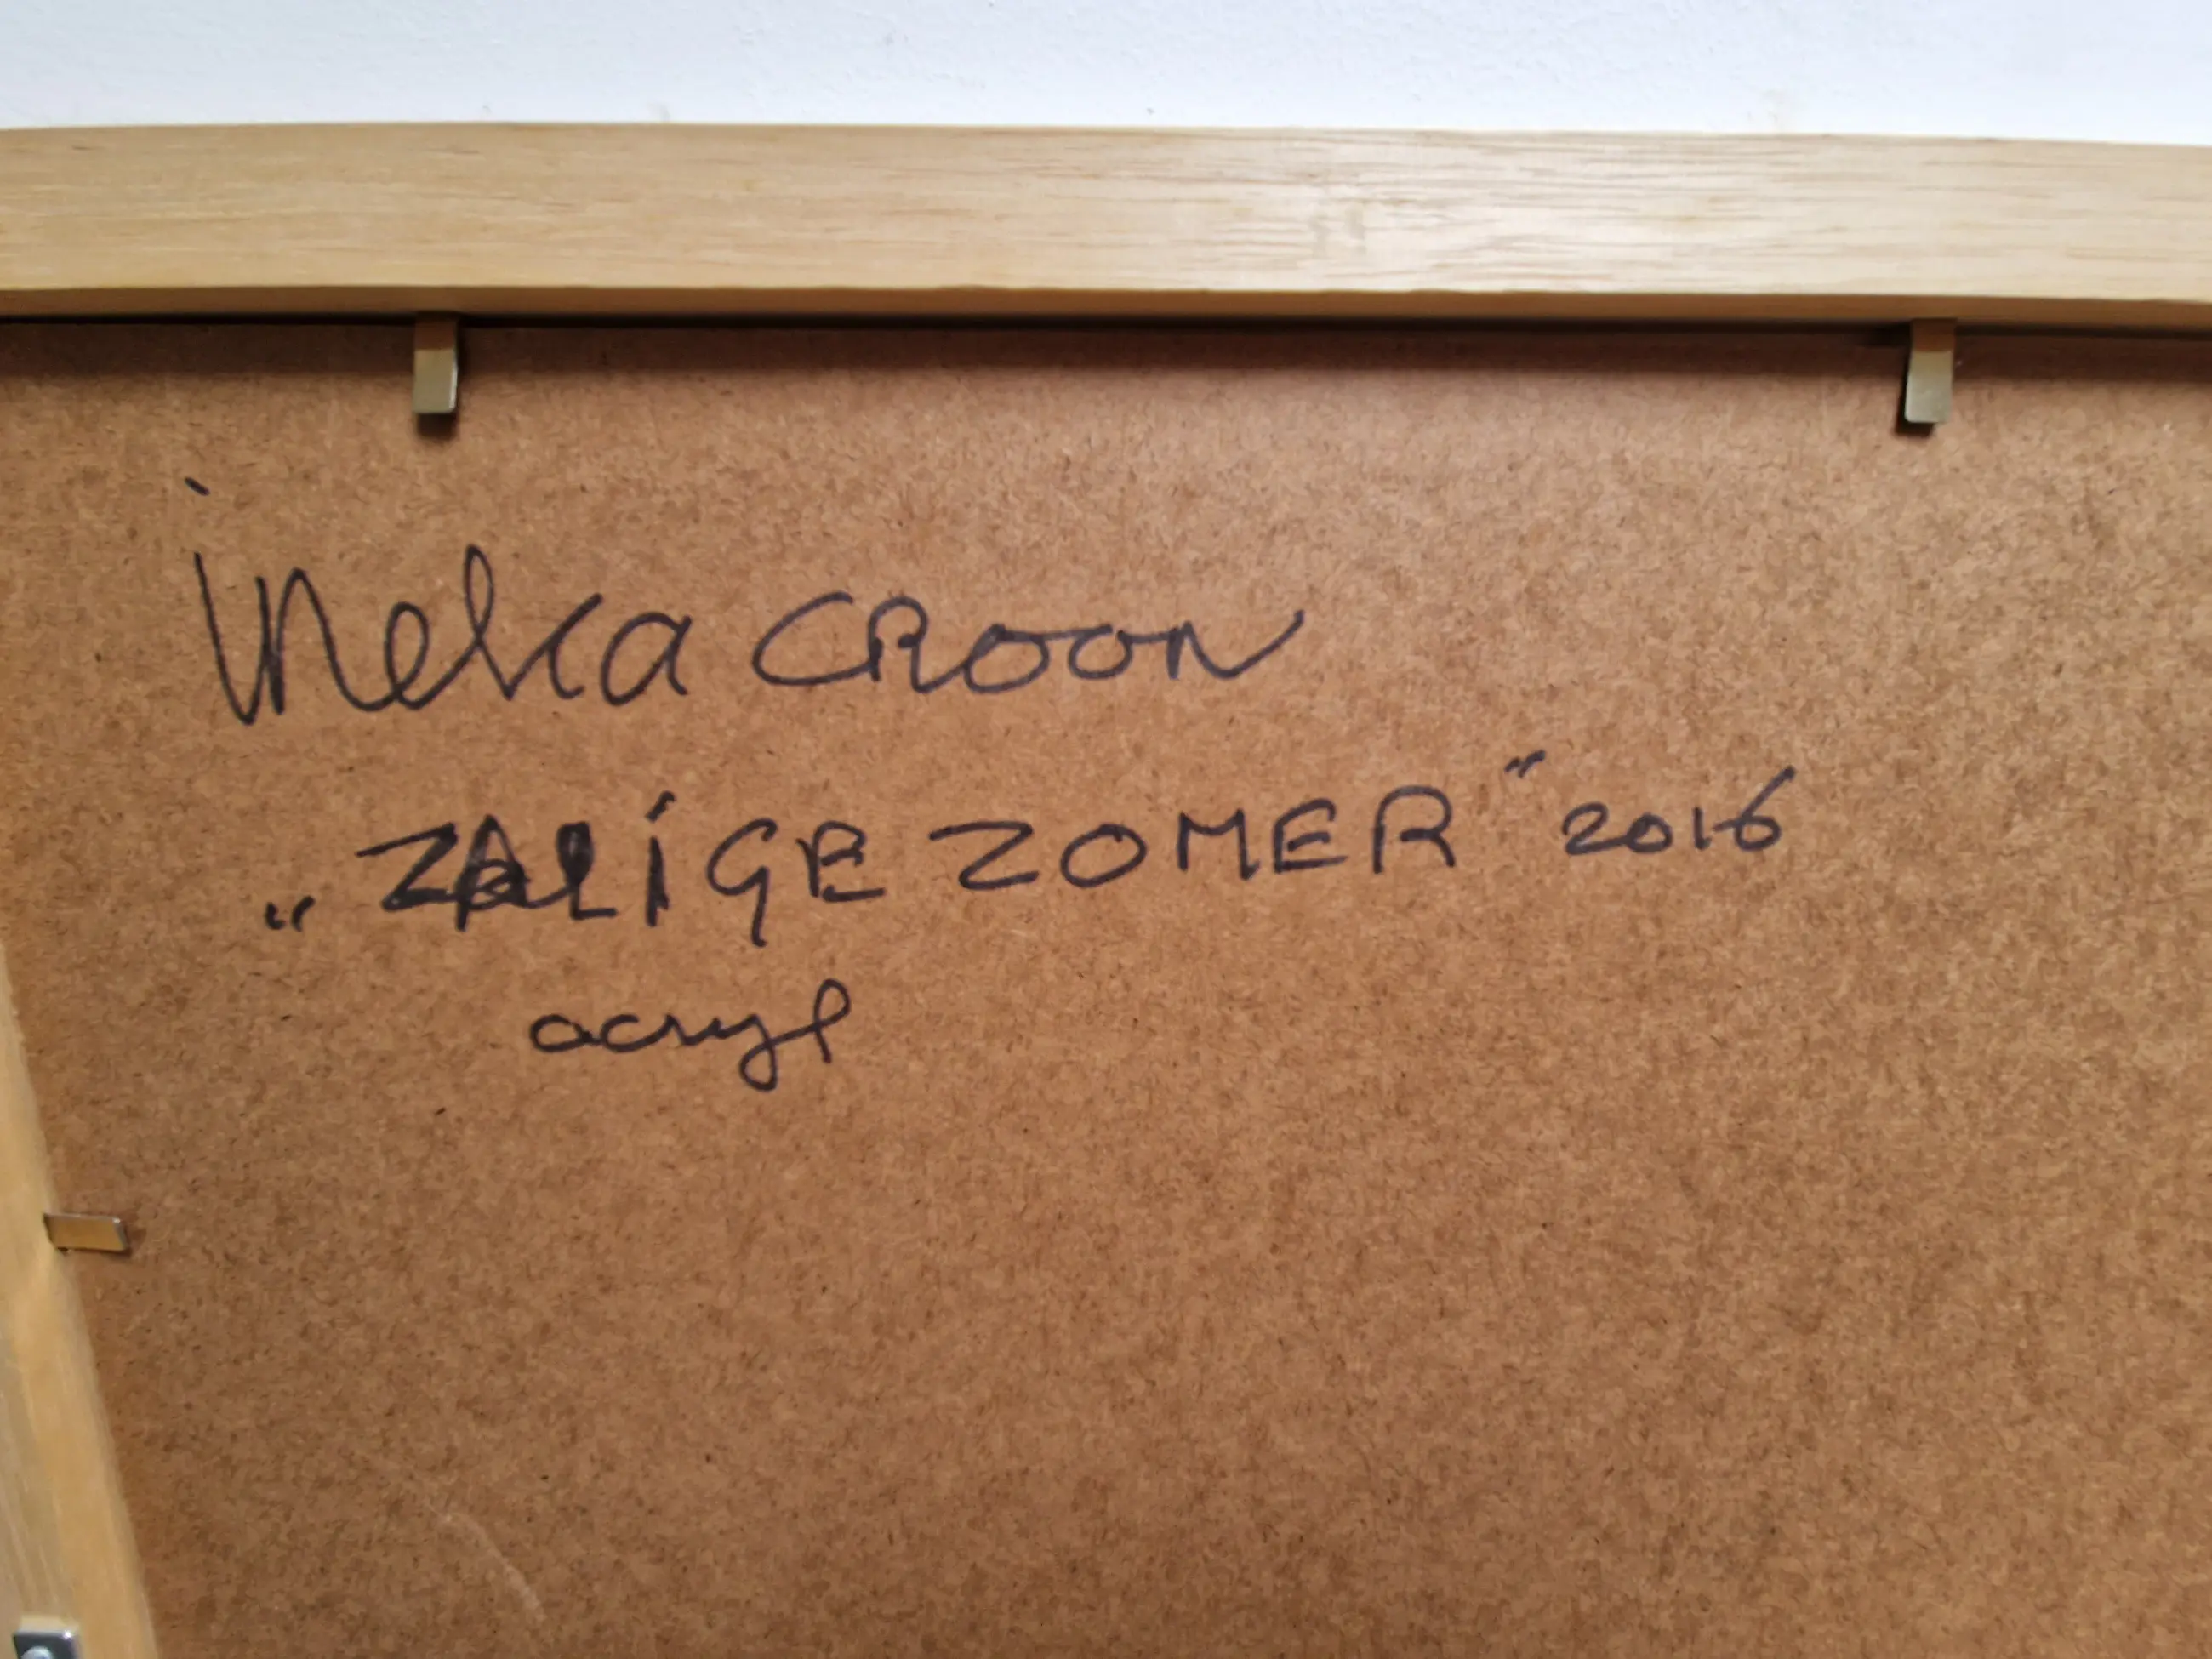 ineka CROON
„ZALIGE ZOMER" 2016
acryl